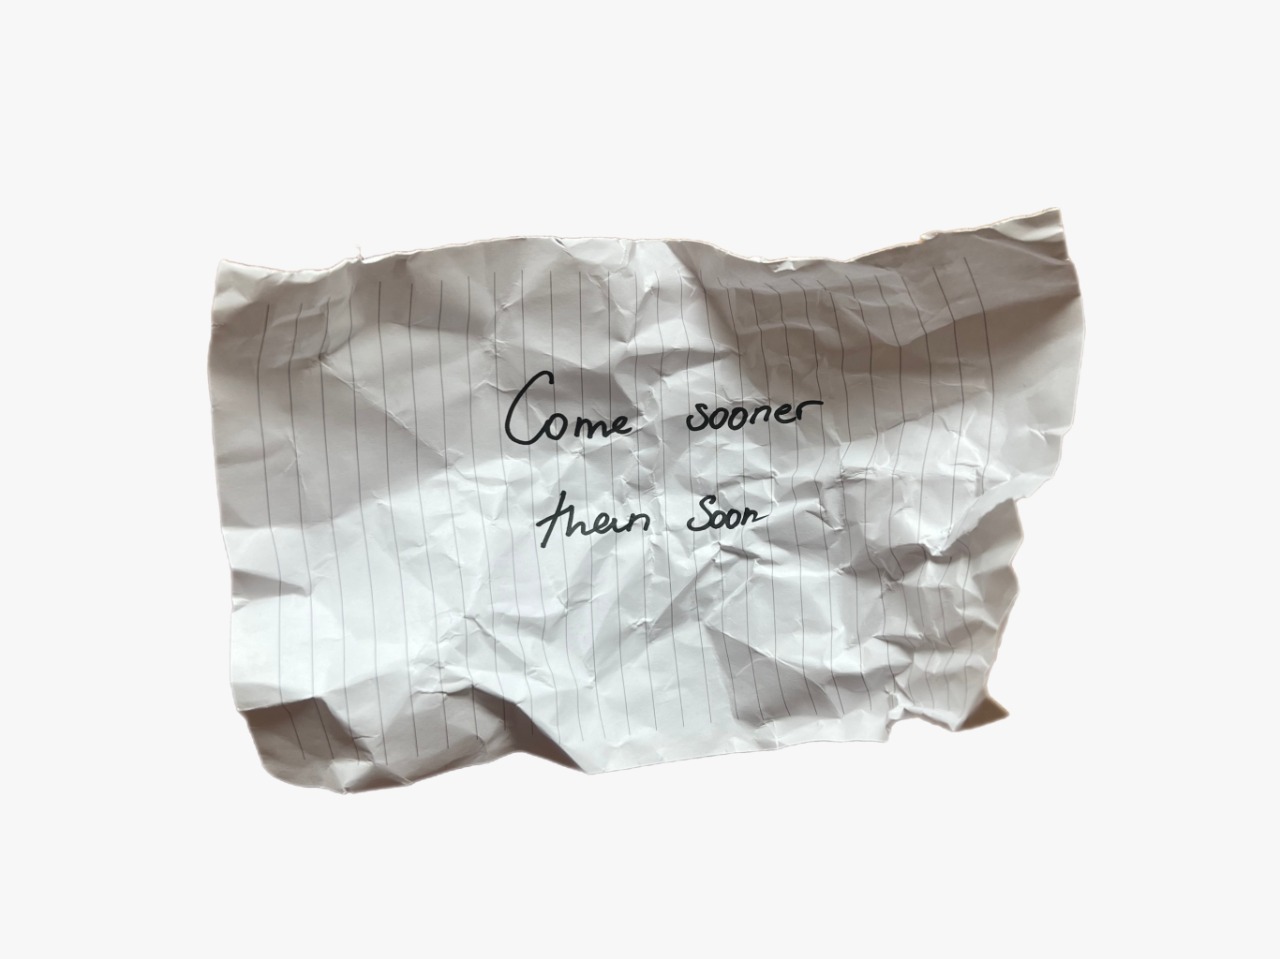 Come sooner
than soon